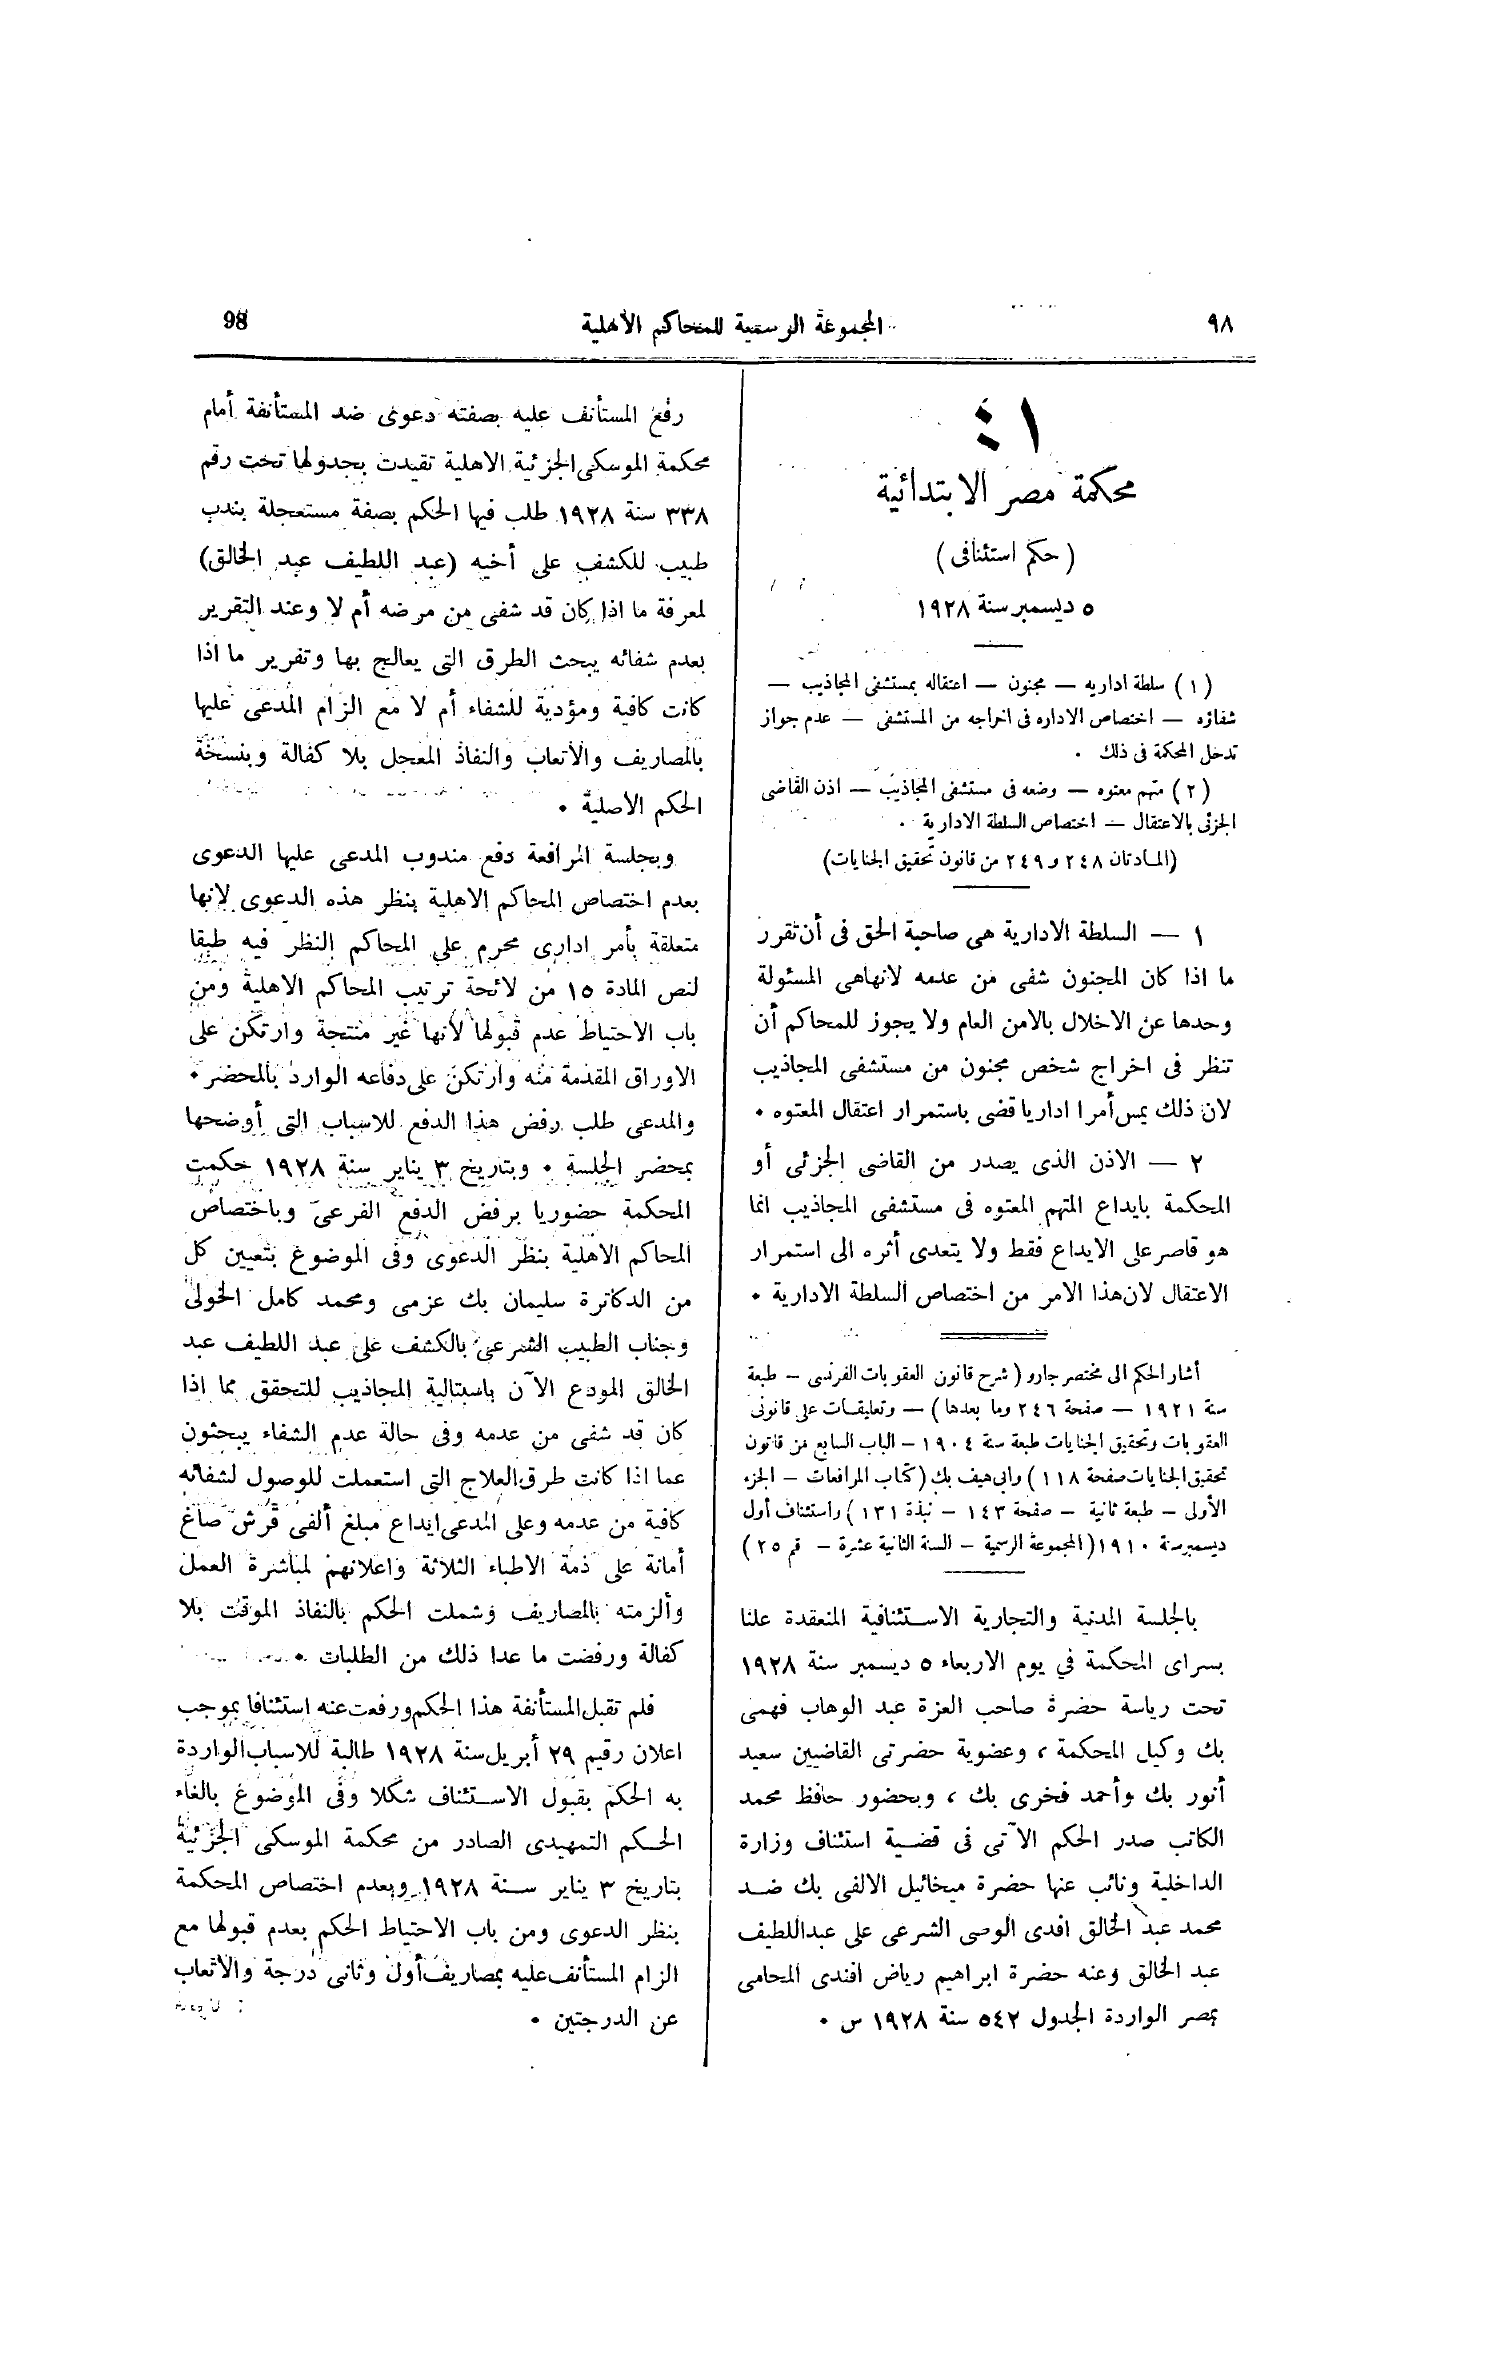 ٩٨
المجموعة الرسمية للمحاكم الأهلية
98
٤١
محكمة مصر الابتدائية
( حكم استئنافى )
٥ ديسمبر سنة ١٩٢٨
( ١ ) سلطة اداريه — مجنون — اعتقاله بمستشفى المجاذيب —
شفاؤه — اختصاص الاداره فى اخراجه من المستشفى — عدم جواز
تدخل المحكمة فى ذلك .
( ٢ ) متهم معتوه — وضعه فى مستشفى المجاذيب — اذن القاضى
الجزئى بالاعتقال — اختصاص السلطة الادارية .
(المادتان ٢٤٨ و ٢٤٩ من قانون تحقيق الجنايات)
١ — السلطة الادارية هى صاحبة الحق فى أن تقرر
ما اذا كان المجنون شفى من عدمه لانهاهى المسئولة
وحدها عن الاخلال بالامن العام ولا يجوز للمحاكم أن
تنظر فى اخراج شخص مجنون من مستشفى المجاذيب
لان ذلك يمس أمرا اداريا قضى باستمرار اعتقال المعتوه .
٢ — الاذن الذى يصدر من القاضى الجزئى أو
المحكمة بايداع المتهم المعتوه فى مستشفى المجاذيب انما
هو قاصر على الايداع فقط ولا يتعدى أثره الى استمرار
الاعتقال لان هذا الامر من اختصاص السلطة الادارية .
أشار الحكم الى مختصر جارو ( شرح قانون العقوبات الفرنسى – طبعة
سنة ١٩٢١ — صفحة ٢٤٦ وما بعدها ) — وتعليقات على قانونى
العقوبات وتحقيق الجنايات طبعة سنة ١٩٠٤ – الباب السابع من قانون
تحقيق الجنايات صفحة ١١٨ ) وابى هيف بك ( كتاب المرافعات – الجزء
الأولى – طبعة ثانية – صفحة ١٤٣ – نبذة ١٣١ ) واستئناف أول
ديسمبر سنة ١٩١٠ ( المجموعة الرسمية – السنة الثانية عشرة – قم ٢٥ )
بالجلسة المدنية والتجارية الاستئنافية المنعقدة علنا
بسراى المحكمة في يوم الاربعاء ٥ ديسمبر سنة ١٩٢٨
تحت رياسة حضرة صاحب العزة عبد الوهاب فهمى
بك وكيل المحكمة ، وعضوية حضرتى القاضيين سعيد
أنور بك وأحمد فخرى بك ، وبحضور حافظ محمد
الكاتب صدر الحكم الآتى فى قضية استئناف وزارة
الداخلية ونائب عنها حضرة ميخائيل الالفى بك ضد
محمد عبد الخالق افدى الوصى الشرعى على عبد اللطيف
عبد الخالق وعنه حضرة ابراهيم رياض افندى المحامى
بمصر الواردة الجدول ٥٤٢ سنة ١٩٢٨ س .
رفع المستأنف عليه بصفته دعوى ضد المستأنفة أمام
محكمة الموسكى الجزئية الاهلية تقيدت بجدولها تحت رقم
٣٣٨ سنة ١٩٢٨ طلب فيها الحكم بصفة مستعجلة بندب
طبيب للكشف على أخيه (عبد اللطيف عبد الخالق)
لمعرفة ما اذا كان قد شفى من مرضه أم لا وعند التقرير
بعدم شفائه يبحث الطرق التى يعالج بها وتقرير ما اذا
كانت كافية ومؤدية للشفاء أم لا مع الزام المدعى عليها
بالمصاريف والأتعاب والنفاذ المعجل بلا كفالة وبنسخة
الحكم الأصلية .
وبجلسة المرافعة دفع مندوب المدعى عليها الدعوى
بعدم اختصاص المحاكم الاهلية بنظر هذه الدعوى لانها
متعلقة بأمر ادارى محرم على المحاكم النظر فيه طبقا
لنص المادة ١٥ من لائحة ترتيب المحاكم الاهلية ومن
باب الاحتياط عدم قبولها لأنها غير منتجة وارتكن على
الاوراق المقدمة منه وارتكن على دفاعه الوارد بالمحضر .
والمدعى طلب رفض هذا الدفع للاسباب التى أوضحها
بمحضر الجلسة . وبتاريخ ٣ يناير سنة ١٩٢٨ حكمت
المحكمة حضوريا برفض الدفع الفرعى وباختصاص
المحاكم الاهلية بنظر الدعوى وفى الموضوع بتعيين كل
من الدكاترة سليمان بك عزمى ومحمد كامل الخولى
وجناب الطبيب الشرعى بالكشف على عبد اللطيف عبد
الخالق المودع الآن باسبتالية المجاذيب للتحقق مما اذا
كان قد شفى من عدمه وفى حالة عدم الشفاء يبحثون
عما اذا كانت طرق العلاج التى استعملت للوصول لشفائه
كافية من عدمه وعلى المدعى ايداع مبلغ ألفى قرش صاغ
أمانة على ذمة الاطباء الثلاثة واعلانهم لمباشرة العمل
وألزمته بالمصاريف وشملت الحكم بالنفاذ الموقت بلا
كفالة ورفضت ما عدا ذلك من الطلبات .
فلم تقبل المستأنفة هذا الحكم ورفعت عنه استئنافا بموجب
اعلان رقيم ٢٩ أبريل سنة ١٩٢٨ طالبة للاسباب الواردة
به الحكم بقبول الاستئناف شكلا وفى الموضوع بالغاء
الحكم التمهيدى الصادر من محكمة الموسكى الجزئية
بتاريخ ٣ يناير سنة ١٩٢٨ وبعدم اختصاص المحكمة
بنظر الدعوى ومن باب الاحتياط الحكم بعدم قبولها مع
الزام المستأنف عليه بمصاريف أول وثانى درجة والأتعاب
عن الدرجتين .